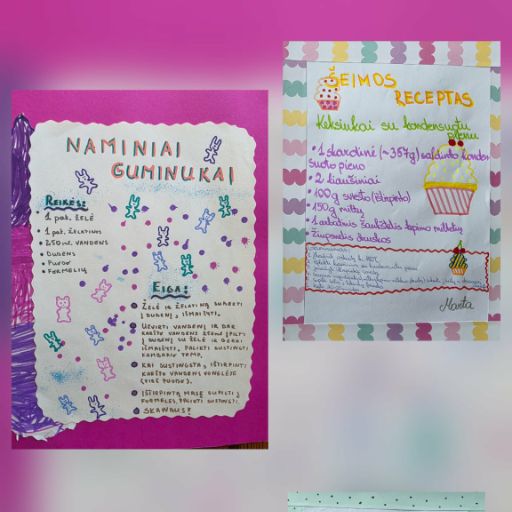 NAMINIAI
GUMINUKAI
REIKĖS:
1 pak. ŽELĖ
1 pak. ŽELATINOS
250 ml VANDENS
DUBENS
PUODO
FORMELIŲ
EIGA:
ŽELĘ IR ŽELATINĄ SUBERTI
Į DUBENĮ, IŠMAIŠYTI.
UŽVIRTI VANDENĮ IR DAR
KARŠTO VANDENS
Į DUBENĮ SU ŽELE IR GERAI
IŠMAIŠYTI, PALIKTI SUSTINGTI
KAMBARIO TEMP.
KAI SUSTINGSTA, IŠTIRPINTI
KARŠTO VANDENS VONELĖJE
(VIRŠ PUODO).
IŠTIRPINTĄ MASĘ SUPILTI Į
FORMELES, PALIKTI SUSTINGTI.
SKANAUS!
ŠEIMOS
RECEPTAS
Keksiukai su kondensuotu
pienu
1 skardinė (~397g) saldinto konden-
suoto pieno
2 kiaušiniai
100g svesto (ištirpinto)
150g miltų
1 arbatinis šaukštelis kepimo miltelių
Žiupsnelis druskos
Marta